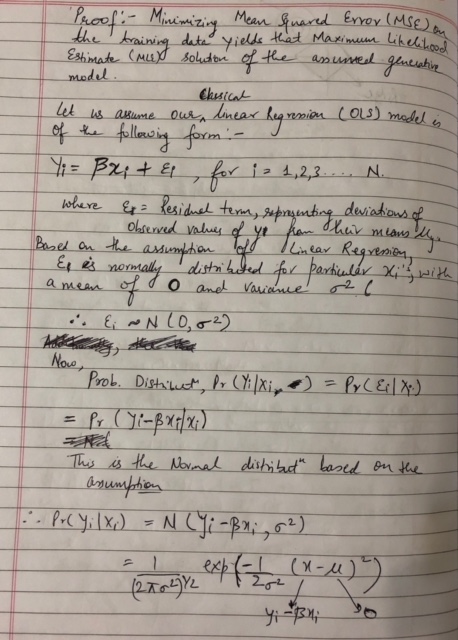 Proof:- Minimizing Mean Squared Error (MSE) on
the training data yields that Maximum Likelihood
Estimate (MLE) solution of the assumed generative
model.
Classical
Let us assume our linear Regression (OLS) model is
of the following form:-
Yi = βxi + εi , for i = 1,2,3.... N.
where εi = Residual term, representing deviations of
observed values of yi from their means
Based on the assumption of Linear Regression,
εi is normally distributed for particular xi's, with
a mean of 0 and variance σ2
∴ εi ~ N (0, σ2)
Now,
Prob. Distributn, Pr (Yi|Xi, ) = Pr(εi|Xi)
= Pr (Yi-βxi|xi)
This is the Normal distributn based on the
assumption
∴ Pr(Yi|Xi) = N(Yi-βxi, σ2)
= 1/(2πσ2)1/2 exp(-1/2σ2 (x-μ)2)
yi-βxi 0